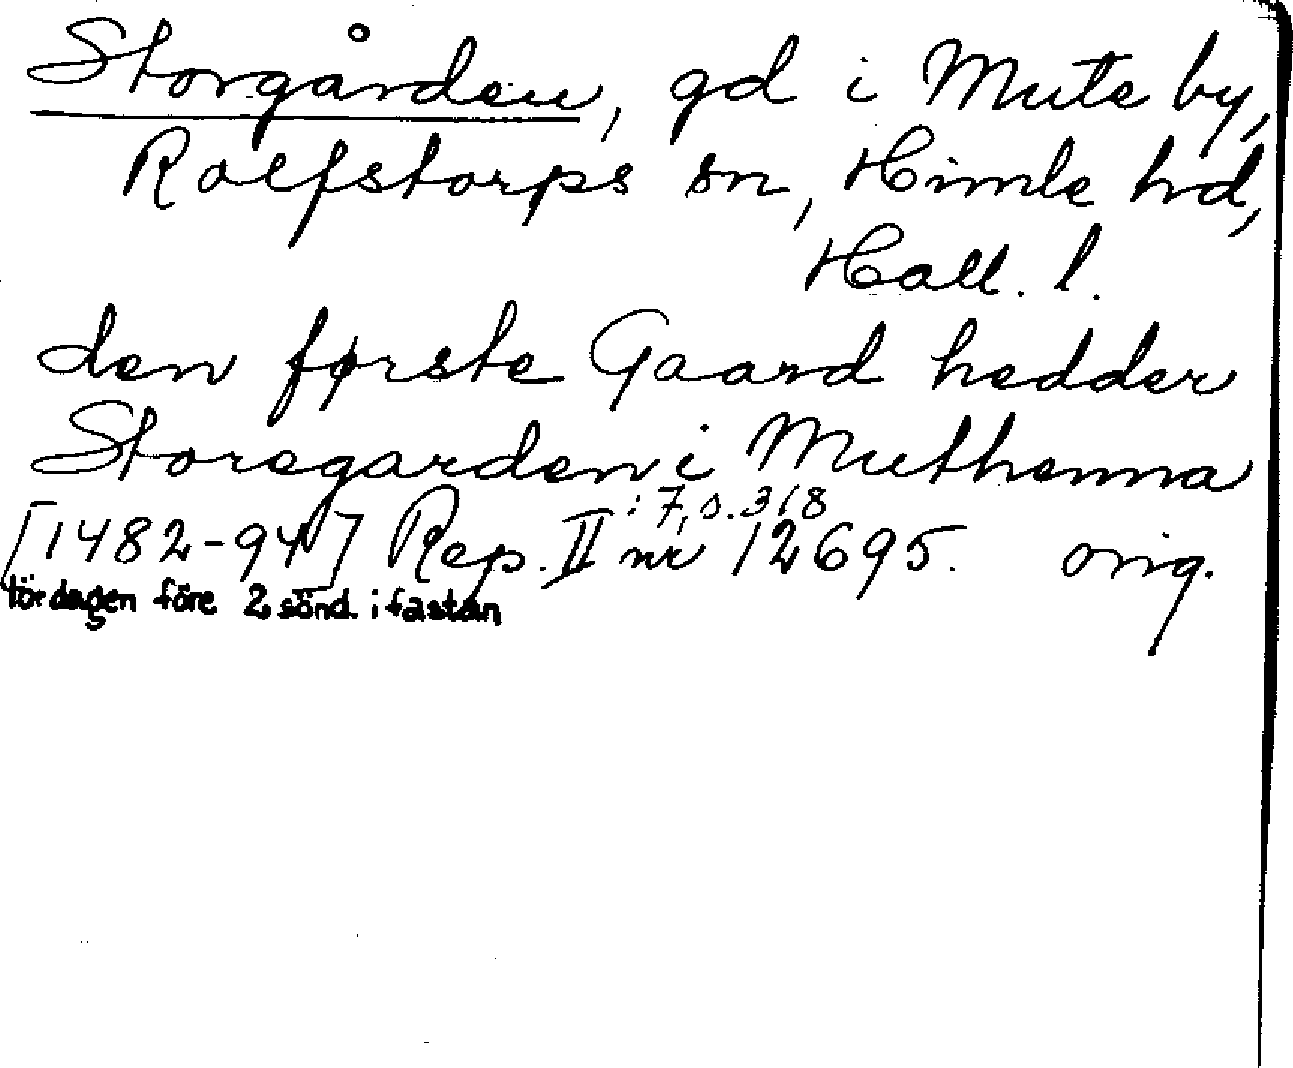 Storgården, gd i Mute by,
Rolfstorps sn, Himle hd,
Hall. l.
den første Gaard hedder
Storegarden i Muthenna
: 7, s. 318
[1482-94] Rep. II nr 12695. orig.
lördagen före 2 sönd. i fastan